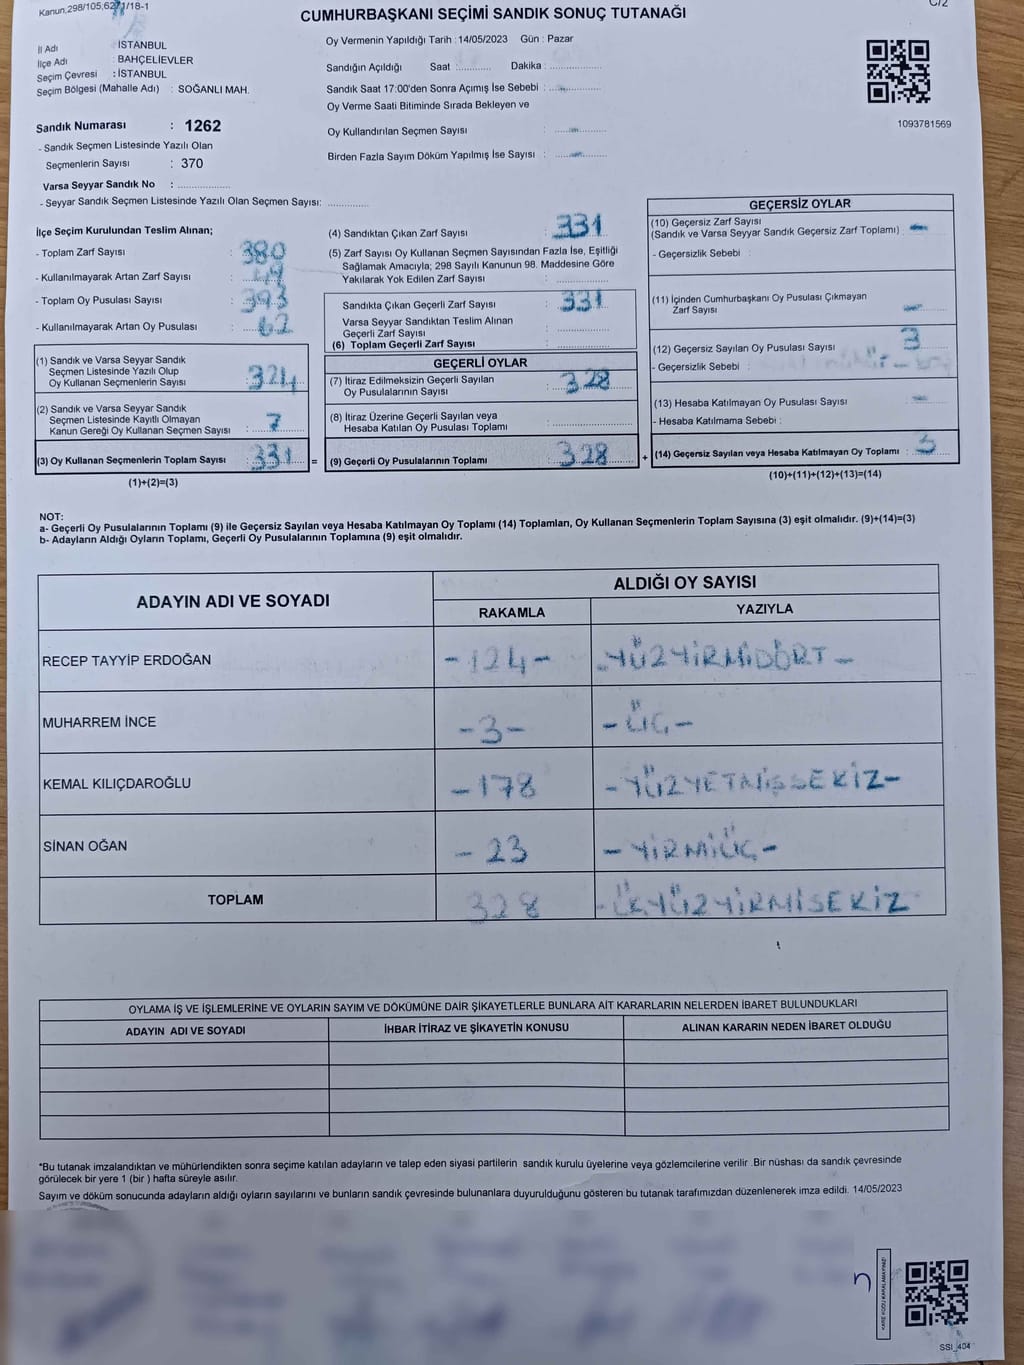 Kanun,298/105,6271/18-1
C/2
CUMHURBAŞKANI SEÇİMİ SANDIK SONUÇ TUTANAĞI
İl Adı : İSTANBUL
İlçe Adı : BAHÇELİEVLER
Seçim Çevresi : İSTANBUL
Seçim Bölgesi (Mahalle Adı) : SOĞANLI MAH.
Sandık Numarası : 1262
- Sandık Seçmen Listesinde Yazılı Olan
Seçmenlerin Sayısı : 370
Varsa Seyyar Sandık No :
- Seyyar Sandık Seçmen Listesinde Yazılı Olan Seçmen Sayısı:
Oy Vermenin Yapıldığı Tarih : 14/05/2023 Gün : Pazar
Sandığın Açıldığı Saat : Dakika :
Sandık Saat 17:00'den Sonra Açımış İse Sebebi : -
Oy Verme Saati Bitiminde Sırada Bekleyen ve
Oy Kullandırılan Seçmen Sayısı : -
Birden Fazla Sayım Döküm Yapılmış İse Sayısı : -
1093781569
İlçe Seçim Kurulundan Teslim Alınan;
- Toplam Zarf Sayısı : 380
- Kullanılmayarak Artan Zarf Sayısı : 49
- Toplam Oy Pusulası Sayısı : 393
- Kullanılmayarak Artan Oy Pusulası : 62
(1) Sandık ve Varsa Seyyar Sandık
Seçmen Listesinde Yazılı Olup
Oy Kullanan Seçmenlerin Sayısı : 324
(2) Sandık ve Varsa Seyyar Sandık
Seçmen Listesinde Kayıtlı Olmayan
Kanun Gereği Oy Kullanan Seçmen Sayısı : 7
(3) Oy Kullanan Seçmenlerin Toplam Sayısı : 331 =
(1)+(2)=(3)
(4) Sandıktan Çıkan Zarf Sayısı : 331
(5) Zarf Sayısı Oy Kullanan Seçmen Sayısından Fazla İse, Eşitliği
Sağlamak Amacıyla; 298 Sayılı Kanunun 98. Maddesine Göre
Yakılarak Yok Edilen Zarf Sayısı :
Sandıkta Çıkan Geçerli Zarf Sayısı : 331
Varsa Seyyar Sandıktan Teslim Alınan
Geçerli Zarf Sayısı :
(6) Toplam Geçerli Zarf Sayısı :
GEÇERLİ OYLAR
(7) İtiraz Edilmeksizin Geçerli Sayılan
Oy Pusulalarının Sayısı : 328
(8) İtiraz Üzerine Geçerli Sayılan veya
Hesaba Katılan Oy Pusulası Toplamı :
(9) Geçerli Oy Pusulalarının Toplamı : 328 +
GEÇERSİZ OYLAR
(10) Geçersiz Zarf Sayısı
(Sandık ve Varsa Seyyar Sandık Geçersiz Zarf Toplamı) : -
- Geçersizlik Sebebi :
(11) İçinden Cumhurbaşkanı Oy Pusulası Çıkmayan
Zarf Sayısı : -
(12) Geçersiz Sayılan Oy Pusulası Sayısı : 3
- Geçersizlik Sebebi :
(13) Hesaba Katılmayan Oy Pusulası Sayısı : -
- Hesaba Katılmama Sebebi :
(14) Geçersiz Sayılan veya Hesaba Katılmayan Oy Toplamı : 3
(10)+(11)+(12)+(13)=(14)
NOT:
a- Geçerli Oy Pusulalarının Toplamı (9) ile Geçersiz Sayılan veya Hesaba Katılmayan Oy Toplamı (14) Toplamları, Oy Kullanan Seçmenlerin Toplam Sayısına (3) eşit olmalıdır. (9)+(14)=(3)
b- Adayların Aldığı Oyların Toplamı, Geçerli Oy Pusulalarının Toplamına (9) eşit olmalıdır.
ADAYIN ADI VE SOYADI
ALDIĞI OY SAYISI
RAKAMLA YAZIYLA
RECEP TAYYİP ERDOĞAN -124- -YÜZYİRMİDÖRT-
MUHARREM İNCE -3- -ÜÇ-
KEMAL KILIÇDAROĞLU -178 -YÜZYETMİŞSEKİZ-
SİNAN OĞAN - 23 -YİRMİÜÇ-
TOPLAM 328 -ÜÇYÜZYİRMİSEKİZ
OYLAMA İŞ VE İŞLEMLERİNE VE OYLARIN SAYIM VE DÖKÜMÜNE DAİR ŞİKAYETLERLE BUNLARA AİT KARARLARIN NELERDEN İBARET BULUNDUKLARI
ADAYIN ADI VE SOYADI İHBAR İTİRAZ VE ŞİKAYETİN KONUSU ALINAN KARARIN NEDEN İBARET OLDUĞU
*Bu tutanak imzalandıktan ve mühürlendikten sonra seçime katılan adayların ve talep eden siyasi partilerin sandık kurulu üyelerine veya gözlemcilerine verilir .Bir nüshası da sandık çevresinde
görülecek bir yere 1 (bir ) hafta süreyle asılır.
Sayım ve döküm sonucunda adayların aldığı oyların sayılarını ve bunların sandık çevresinde bulunanlara duyurulduğunu gösteren bu tutanak tarafımızdan düzenlenerek imza edildi. 14/05/2023
KARE KODU KARALAMAYINIZ!
SSI_404